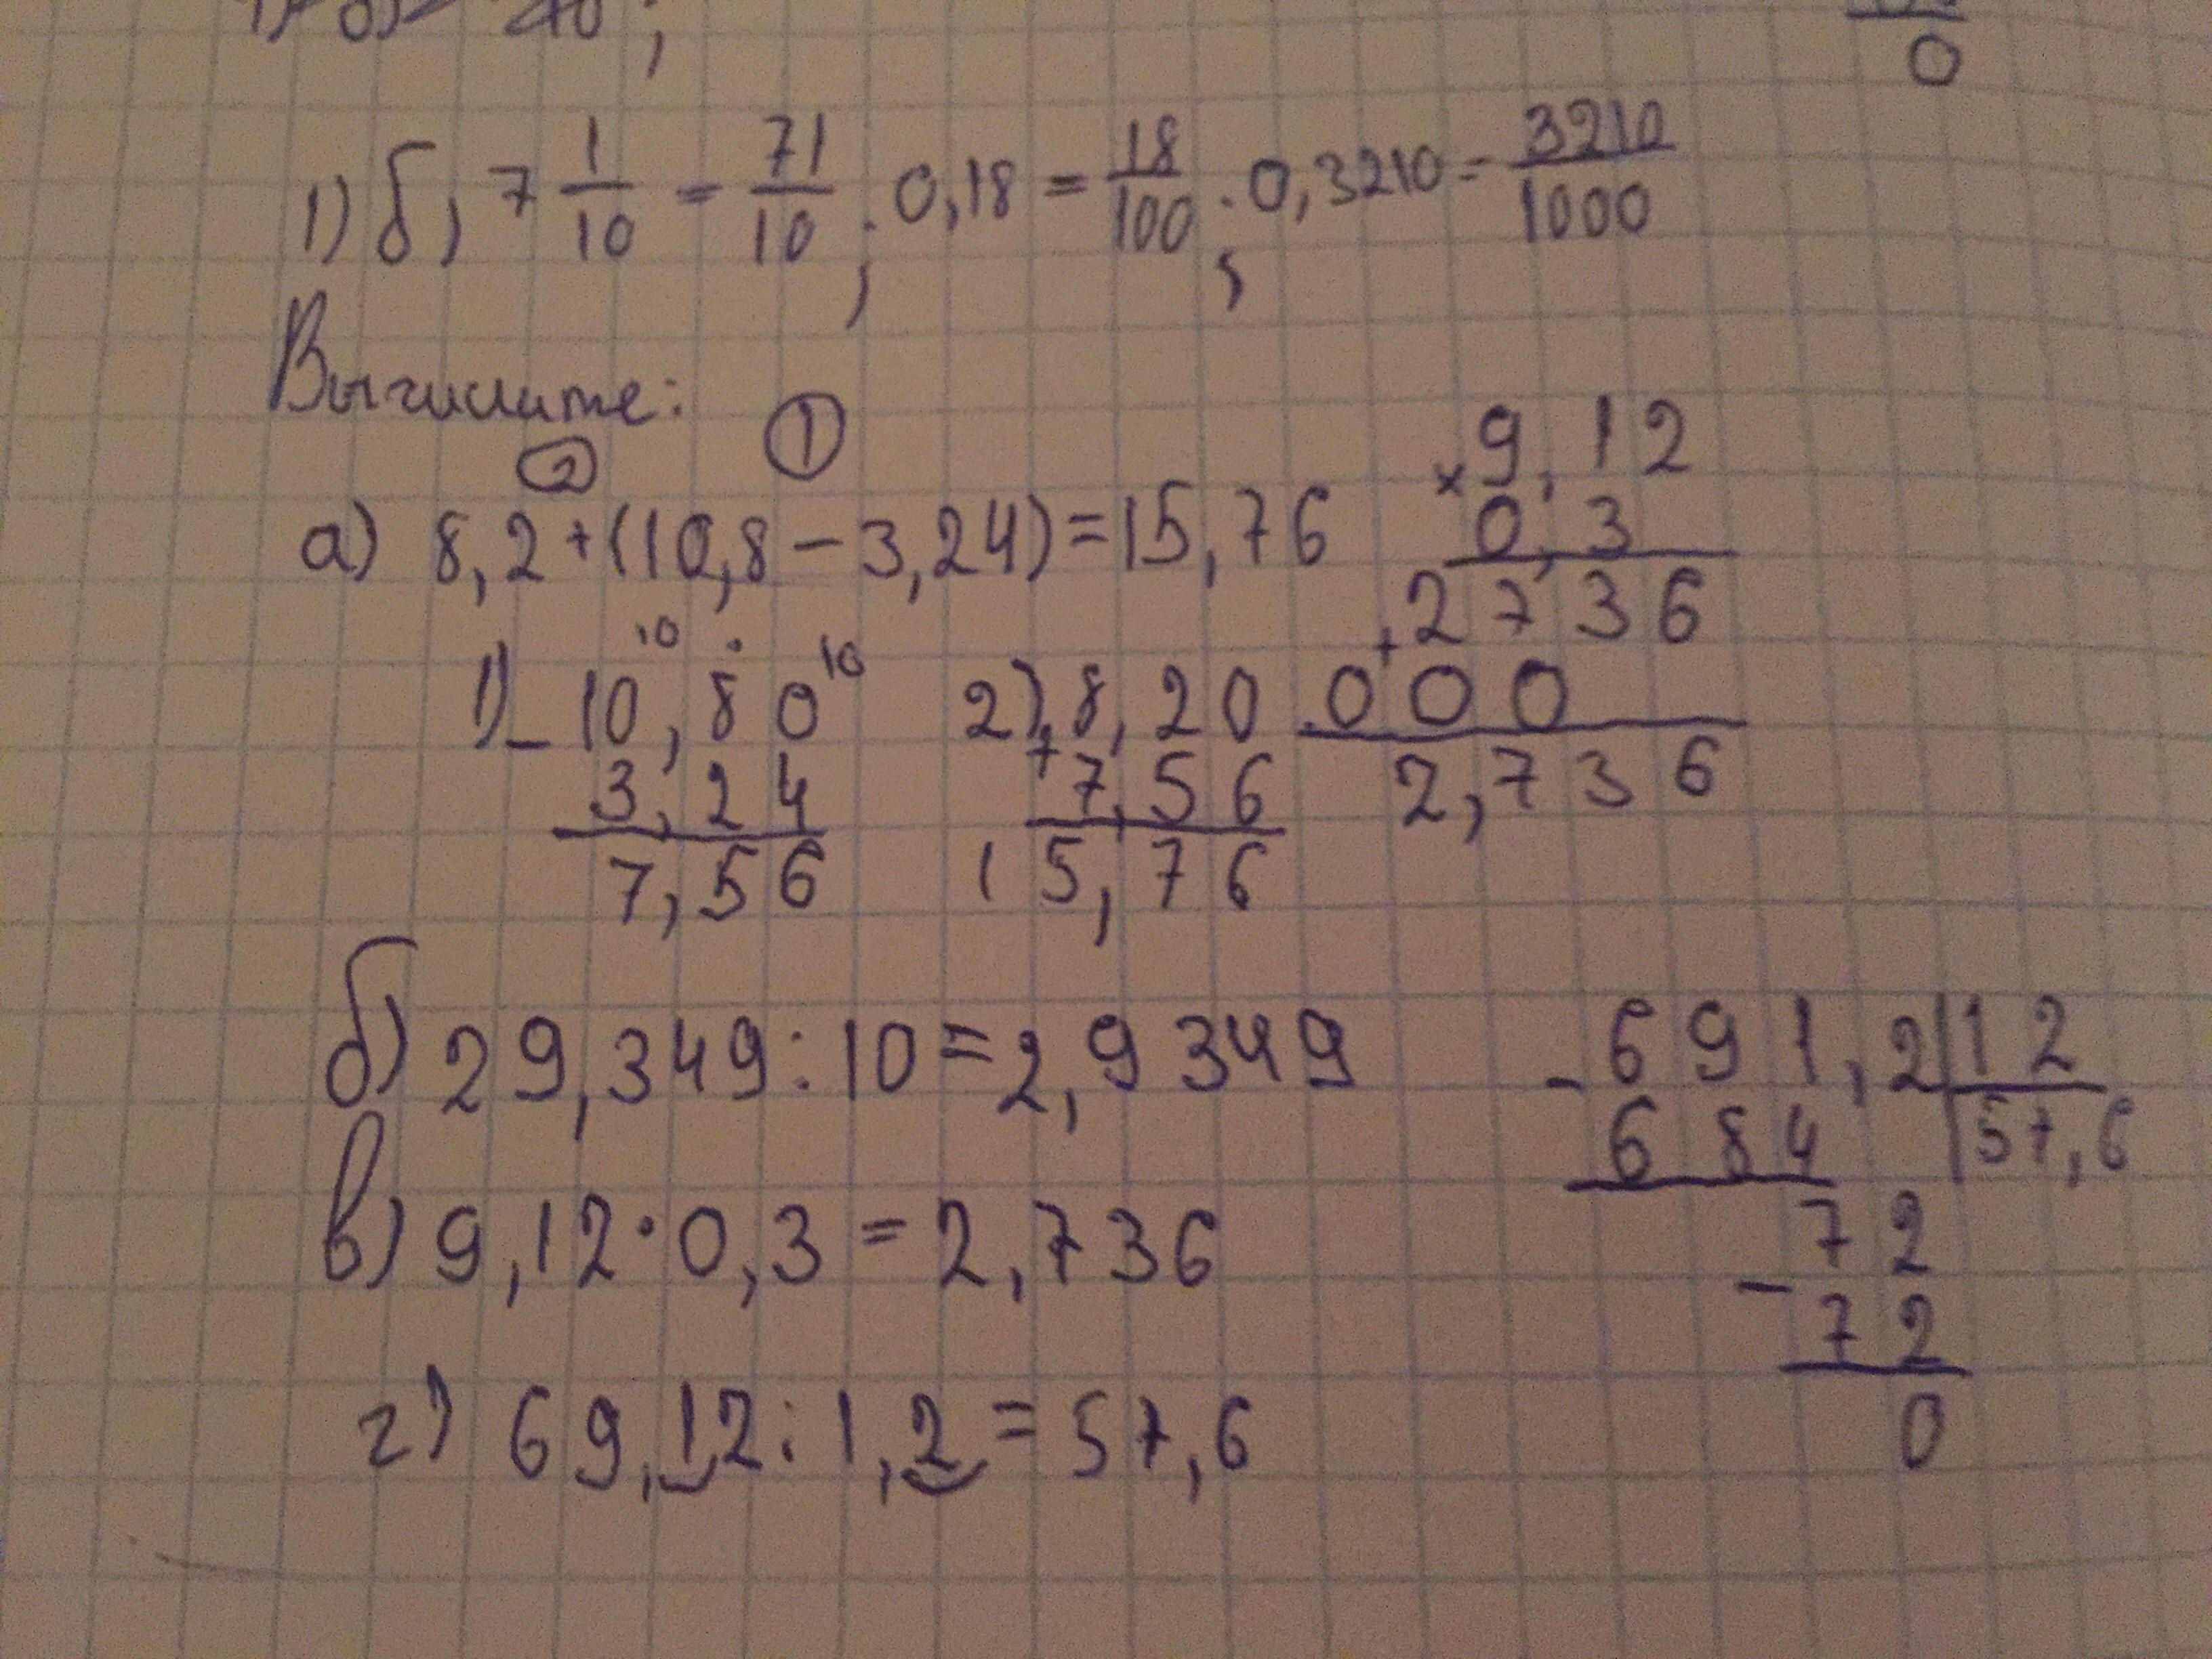 0
1) б) 7 1/10 = 71/10 ; 0,18 = 18/100 ; 0,3210 = 3210/1000
Вычислите:
② ①
а) 8,2+(10,8−3,24)=15,76
1) 10 10
− 10,80
3,24
7,56
2) 8,20
+ 7,56
15,76
× 9,12
0,3
+ 2736
000
2,736
б) 29,349:10=2,9349
в) 9,12·0,3=2,736
г) 69,12:1,2=57,6
− 691,2|12
684 |57,6
72
− 72
0